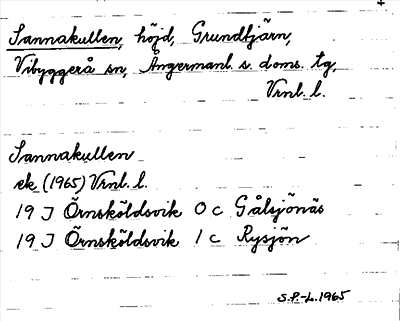 Sannakullen, höjd, Grundtjärn,
Vibyggerå sn, Ångermanl. s. doms. tg,
Vrnl. l.
Sannakullen
ek (1965) Vrnl. l.
19 J Örnsköldsvik 0 c Gålsjönäs
19 J Örnsköldsvik 1 c Rysjön
S.P.-L. 1965